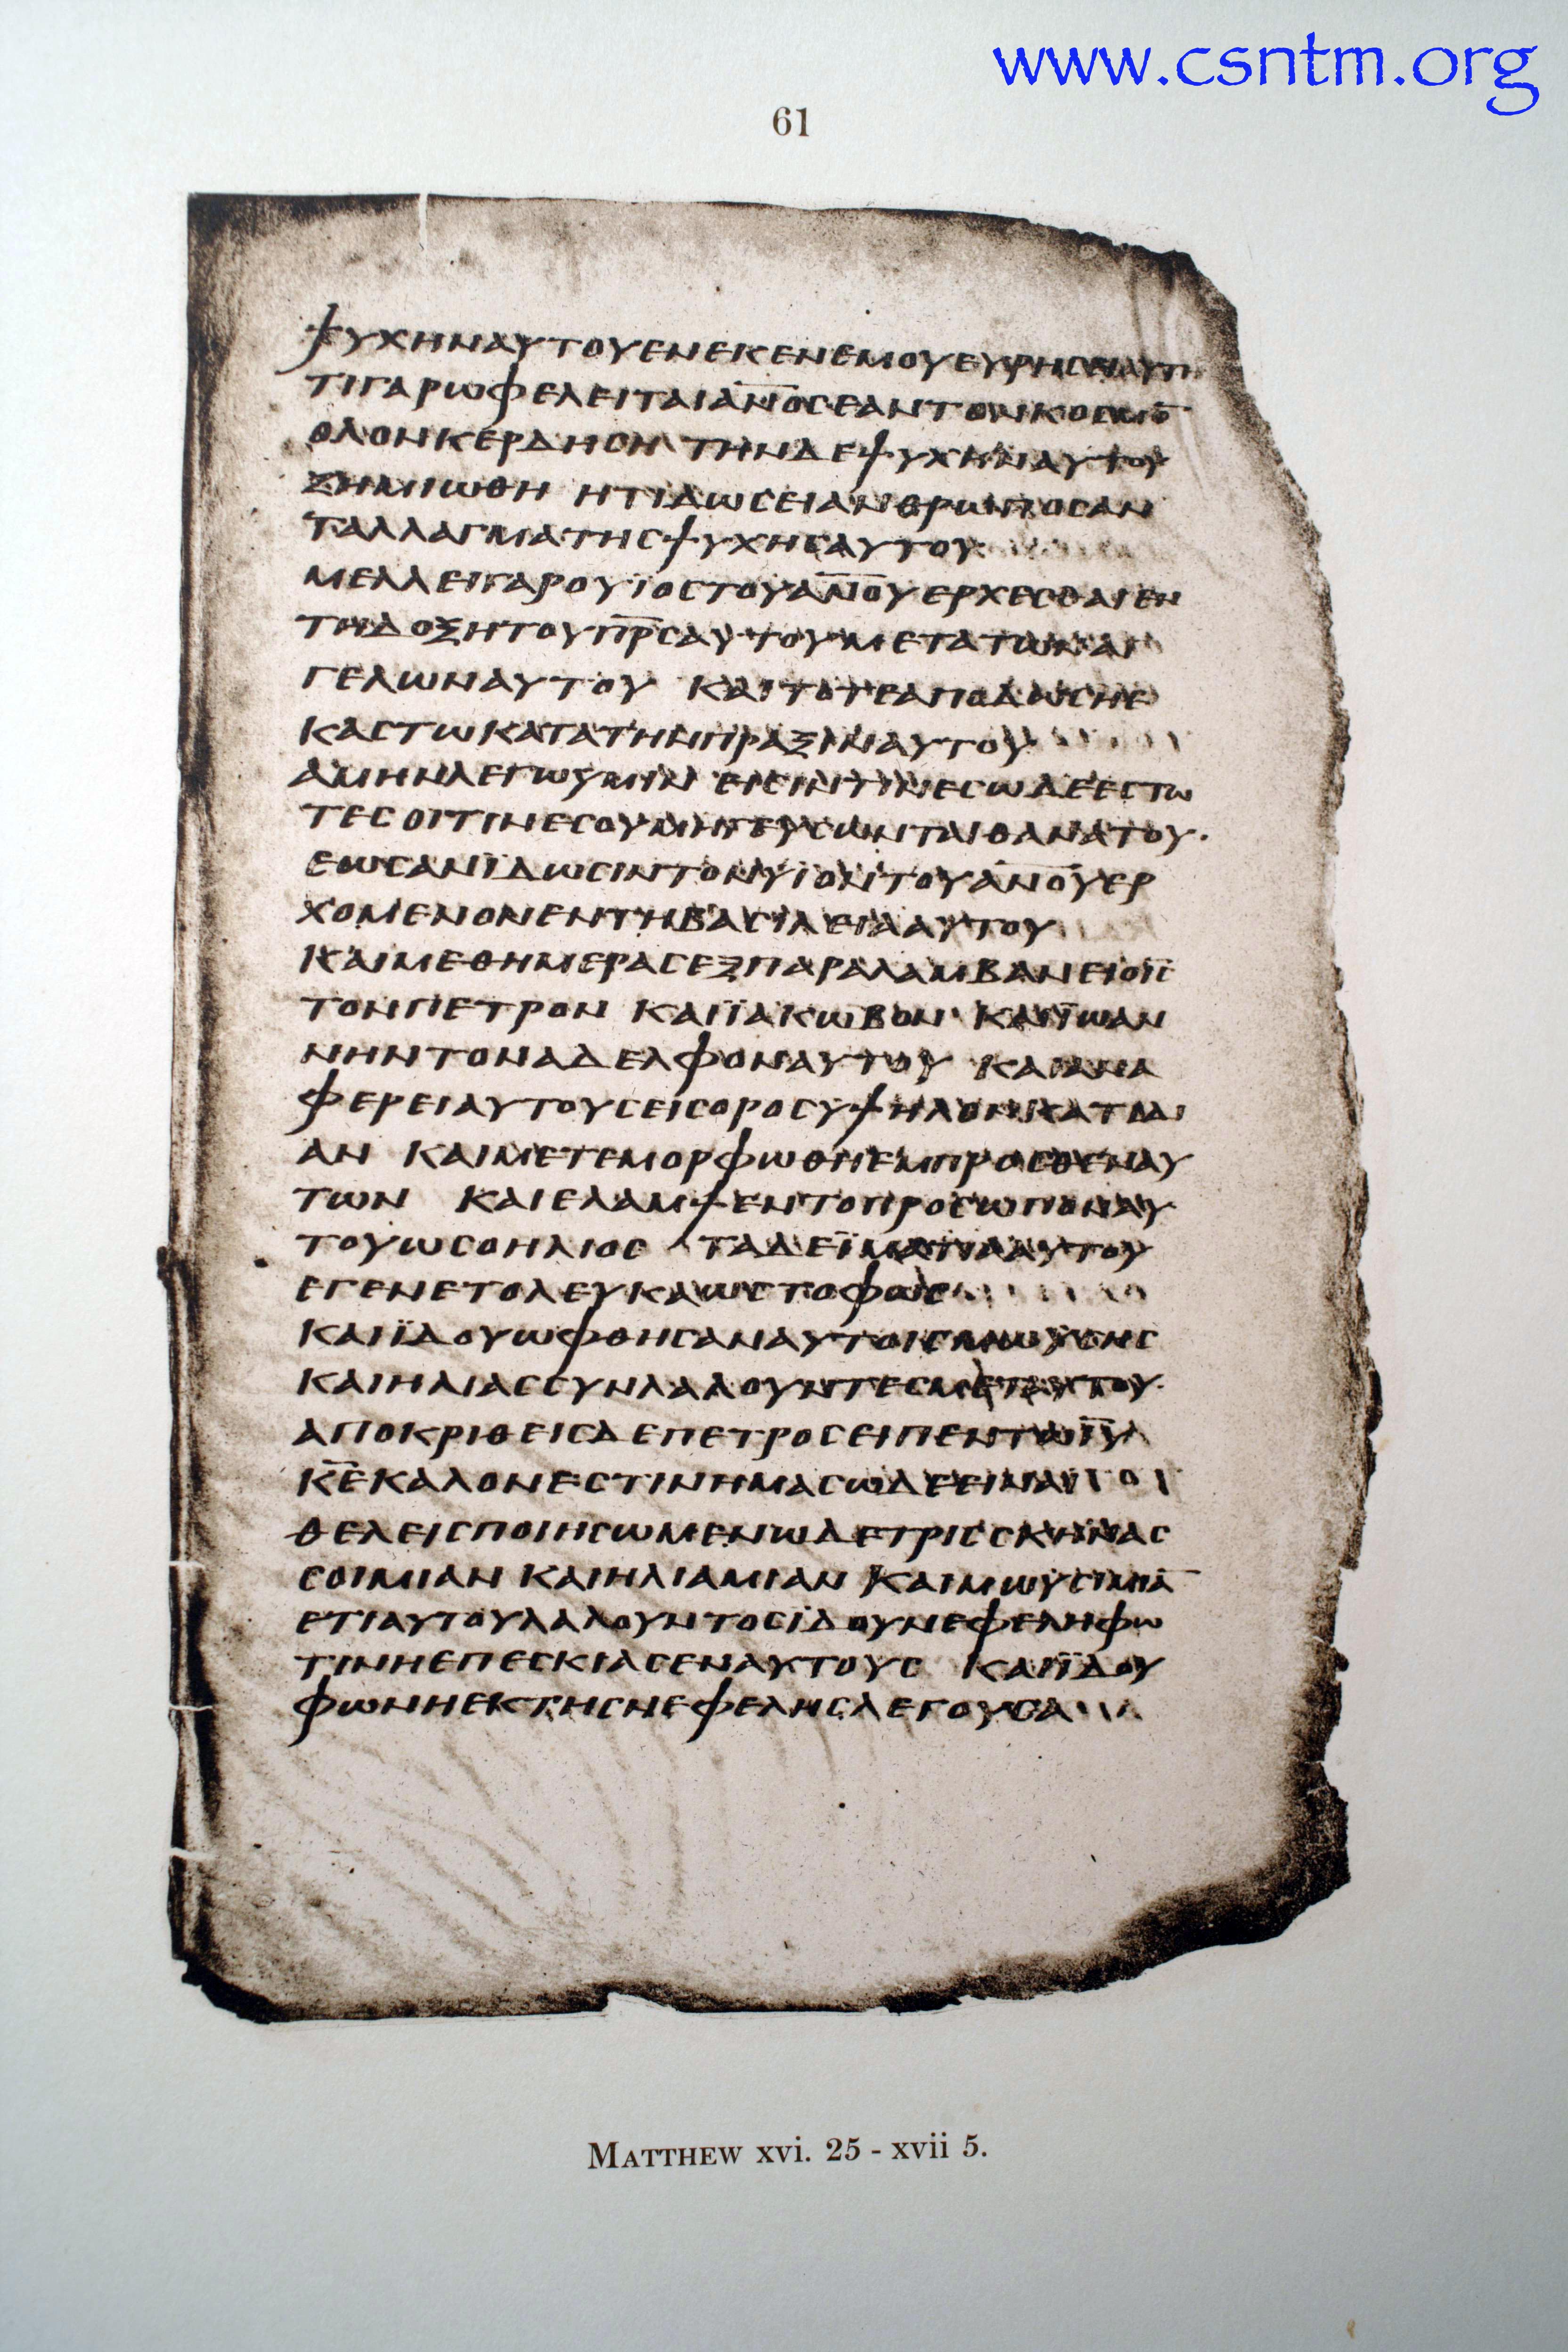 www.csntm.org
61
ΨΥΧΗΝΑΥΤΟΥΕΝΕΚΕΝΕΜΟΥΕΥΡΗϹΕΙΑΥΤΗ
ΤΙΓΑΡΩΦΕΛΕΙΤΑΙΑ̅Ν̅Ο̅Ϲ̅ΕΑΝΤΟΝΚΟϹΜΟ̅
ΟΛΟΝΚΕΡΔΗϹΗ ΤΗΝΔΕΨΥΧΗΝΑΥΤΟΥ
ΖΗΜΙΩΘΗ ΗΤΙΔΩϹΕΙΑΝΘΡΩΠΟϹΑΝ
ΤΑΛΛΑΓΜΑΤΗϹΨΥΧΗϹΑΥΤΟΥ
ΜΕΛΛΕΙΓΑΡΟΥΪΟϹΤΟΥΑ̅Ν̅Ο̅Υ̅ΕΡΧΕϹΘΑΙΕΝ
ΤΗΔΟΞΗΤΟΥΠ̅Ρ̅Ϲ̅ΑΥΤΟΥΜΕΤΑΤΩΝΑΓ
ΓΕΛΩΝΑΥΤΟΥ ΚΑΙΤΟΤΕΑΠΟΔΩϹΗΕ
ΚΑϹΤΩΚΑΤΑΤΗΝΠΡΑΞΙΝΑΥΤΟΥ
ΑΜΗΝΛΕΓΩΥΜΙΝ ΕΙϹΙΝΤΙΝΕϹΩΔΕΕϹΤΩ
ΤΕϹΟΙΤΙΝΕϹΟΥΜΗΓΕΥϹΩΝΤΑΙΘΑΝΑΤΟΥ·
ΕΩϹΑΝΪΔΩϹΙΝΤΟΝΥΙΟΝΤΟΥΑ̅Ν̅Ο̅Υ̅ΕΡ
ΧΟΜΕΝΟΝΕΝΤΗΒΑϹΙΛΕΙΑΑΥΤΟΥ
ΚΑΙΜΕΘΗΜΕΡΑϹΕΞΠΑΡΑΛΑΜΒΑΝΕΙΟΙ̅Ϲ̅
ΤΟΝΠΕΤΡΟΝ ΚΑΙΪΑΚΩΒΟΝ ΚΑΙΪΩΑΝ
ΝΗΝΤΟΝΑΔΕΛΦΟΝΑΥΤΟΥ ΚΑΙΑΝΑ
ΦΕΡΕΙΑΥΤΟΥϹΕΙϹΟΡΟϹΥΨΗΛΟΝΚΑΤΙΔΙ
ΑΝ ΚΑΙΜΕΤΕΜΟΡΦΩΘΗΕΜΠΡΟϹΘΕΝΑΥ
ΤΩΝ ΚΑΙΕΛΑΜΨΕΝΤΟΠΡΟϹΩΠΟΝΑΥ
ΤΟΥΩϹΟΗΛΙΟϹ ΤΑΔΕΪΜΑΤΙΑΑΥΤΟΥ
ΕΓΕΝΕΤΟΛΕΥΚΑΩϹΤΟΦΩϹ
ΚΑΙΪΔΟΥΩΦΘΗϹΑΝΑΥΤΟΙϹΜΩΥϹΗϹ
ΚΑΙΗΛΙΑϹϹΥΝΛΑΛΟΥΝΤΕϹΜΕΤΑΥΤΟΥ·
ΑΠΟΚΡΙΘΕΙϹΔΕΠΕΤΡΟϹΕΙΠΕΝΤΩΙ̅Υ̅
Κ̅Ε̅ΚΑΛΟΝΕϹΤΙΝΗΜΑϹΩΔΕΕΙΝΑΙ
ΘΕΛΕΙϹΠΟΙΗϹΩΜΕΝΩΔΕΤΡΙϹϹΚΗΝΑϹ
ϹΟΙΜΙΑΝ ΚΑΙΗΛΙΑΜΙΑΝ ΚΑΙΜΩΥϹΙΜΙΑ̅
ΕΤΙΑΥΤΟΥΛΑΛΟΥΝΤΟϹΪΔΟΥΝΕΦΕΛΗΦΩ
ΤΙΝΗΕΠΕϹΚΙΑϹΕΝΑΥΤΟΥϹ ΚΑΙΪΔΟΥ
ΦΩΝΗΕΚΤΗϹΝΕΦΕΛΗϹΛΕΓΟΥϹΑ
MATTHEW xvi. 25 - xvii 5.